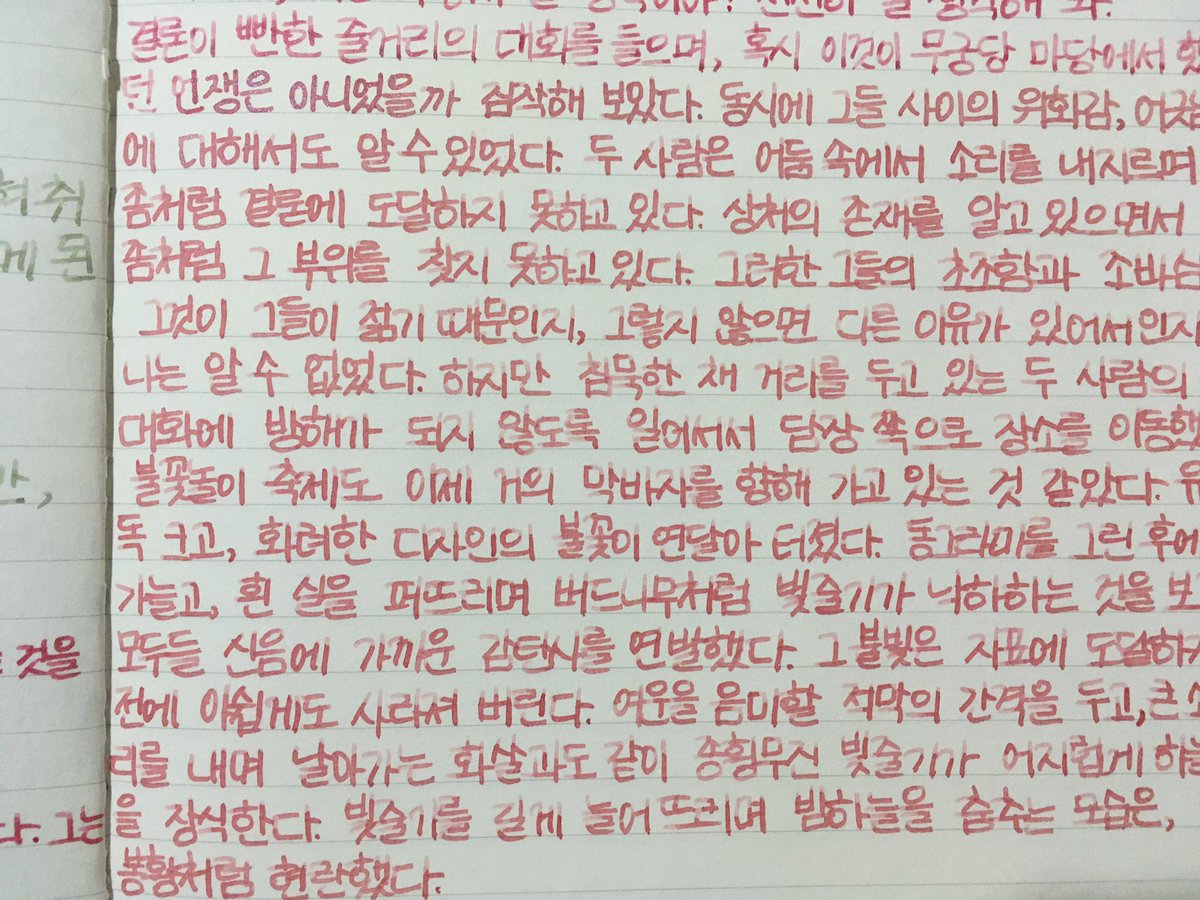 결론이 뻔한 줄거리의 대화를 들으며, 혹시 이것이 무궁당 마당에서 했
던 언쟁은 아니었을까 짐작해 보았다. 동시에 그들 사이의 위화감,
에 대해서도 알 수 있었다. 두 사람은 어둠 속에서 소리를 내지르며
좀처럼 결론에 도달하지 못하고 있다. 상처의 존재를 알고 있으면서
좀처럼 그 부위를 찾지 못하고 있다. 그러한 그들의 초조함과 조바심
그것이 그들이 젊기 때문인지, 그렇지 않으면 다른 이유가 있어서인지
나는 알 수 없었다. 하지만 침묵한 채 거리를 두고 있는 두 사람의
대화에 방해가 되지 않도록 일어서서 담장 쪽으로 장소를 이동했
불꽃놀이 축제도 이제 거의 막바지를 향해 가고 있는 것 같았다. 유
독 크고, 화려한 디자인의 불꽃이 연달아 터졌다. 동그라미를 그린 후에
가늘고, 흰 실을 퍼뜨리며 버드나무처럼 빛줄기가 낙하하는 것을 보
모두들 신음에 가까운 감탄사를 연발했다. 그 불빛은 지표에 도달하기
전에 아쉽게도 사라져 버린다. 여운을 음미할 적막의 간격을 두고, 큰 소
리를 내며 날아가는 화살과도 같이 종횡무진 빛줄기가 어지럽게 하늘
을 장식한다. 빛줄기를 길게 늘어뜨리며 밤하늘을 춤추는 모습은,
봉황처럼 현란했다.
허취
게 된
만,
것을
다. 그는